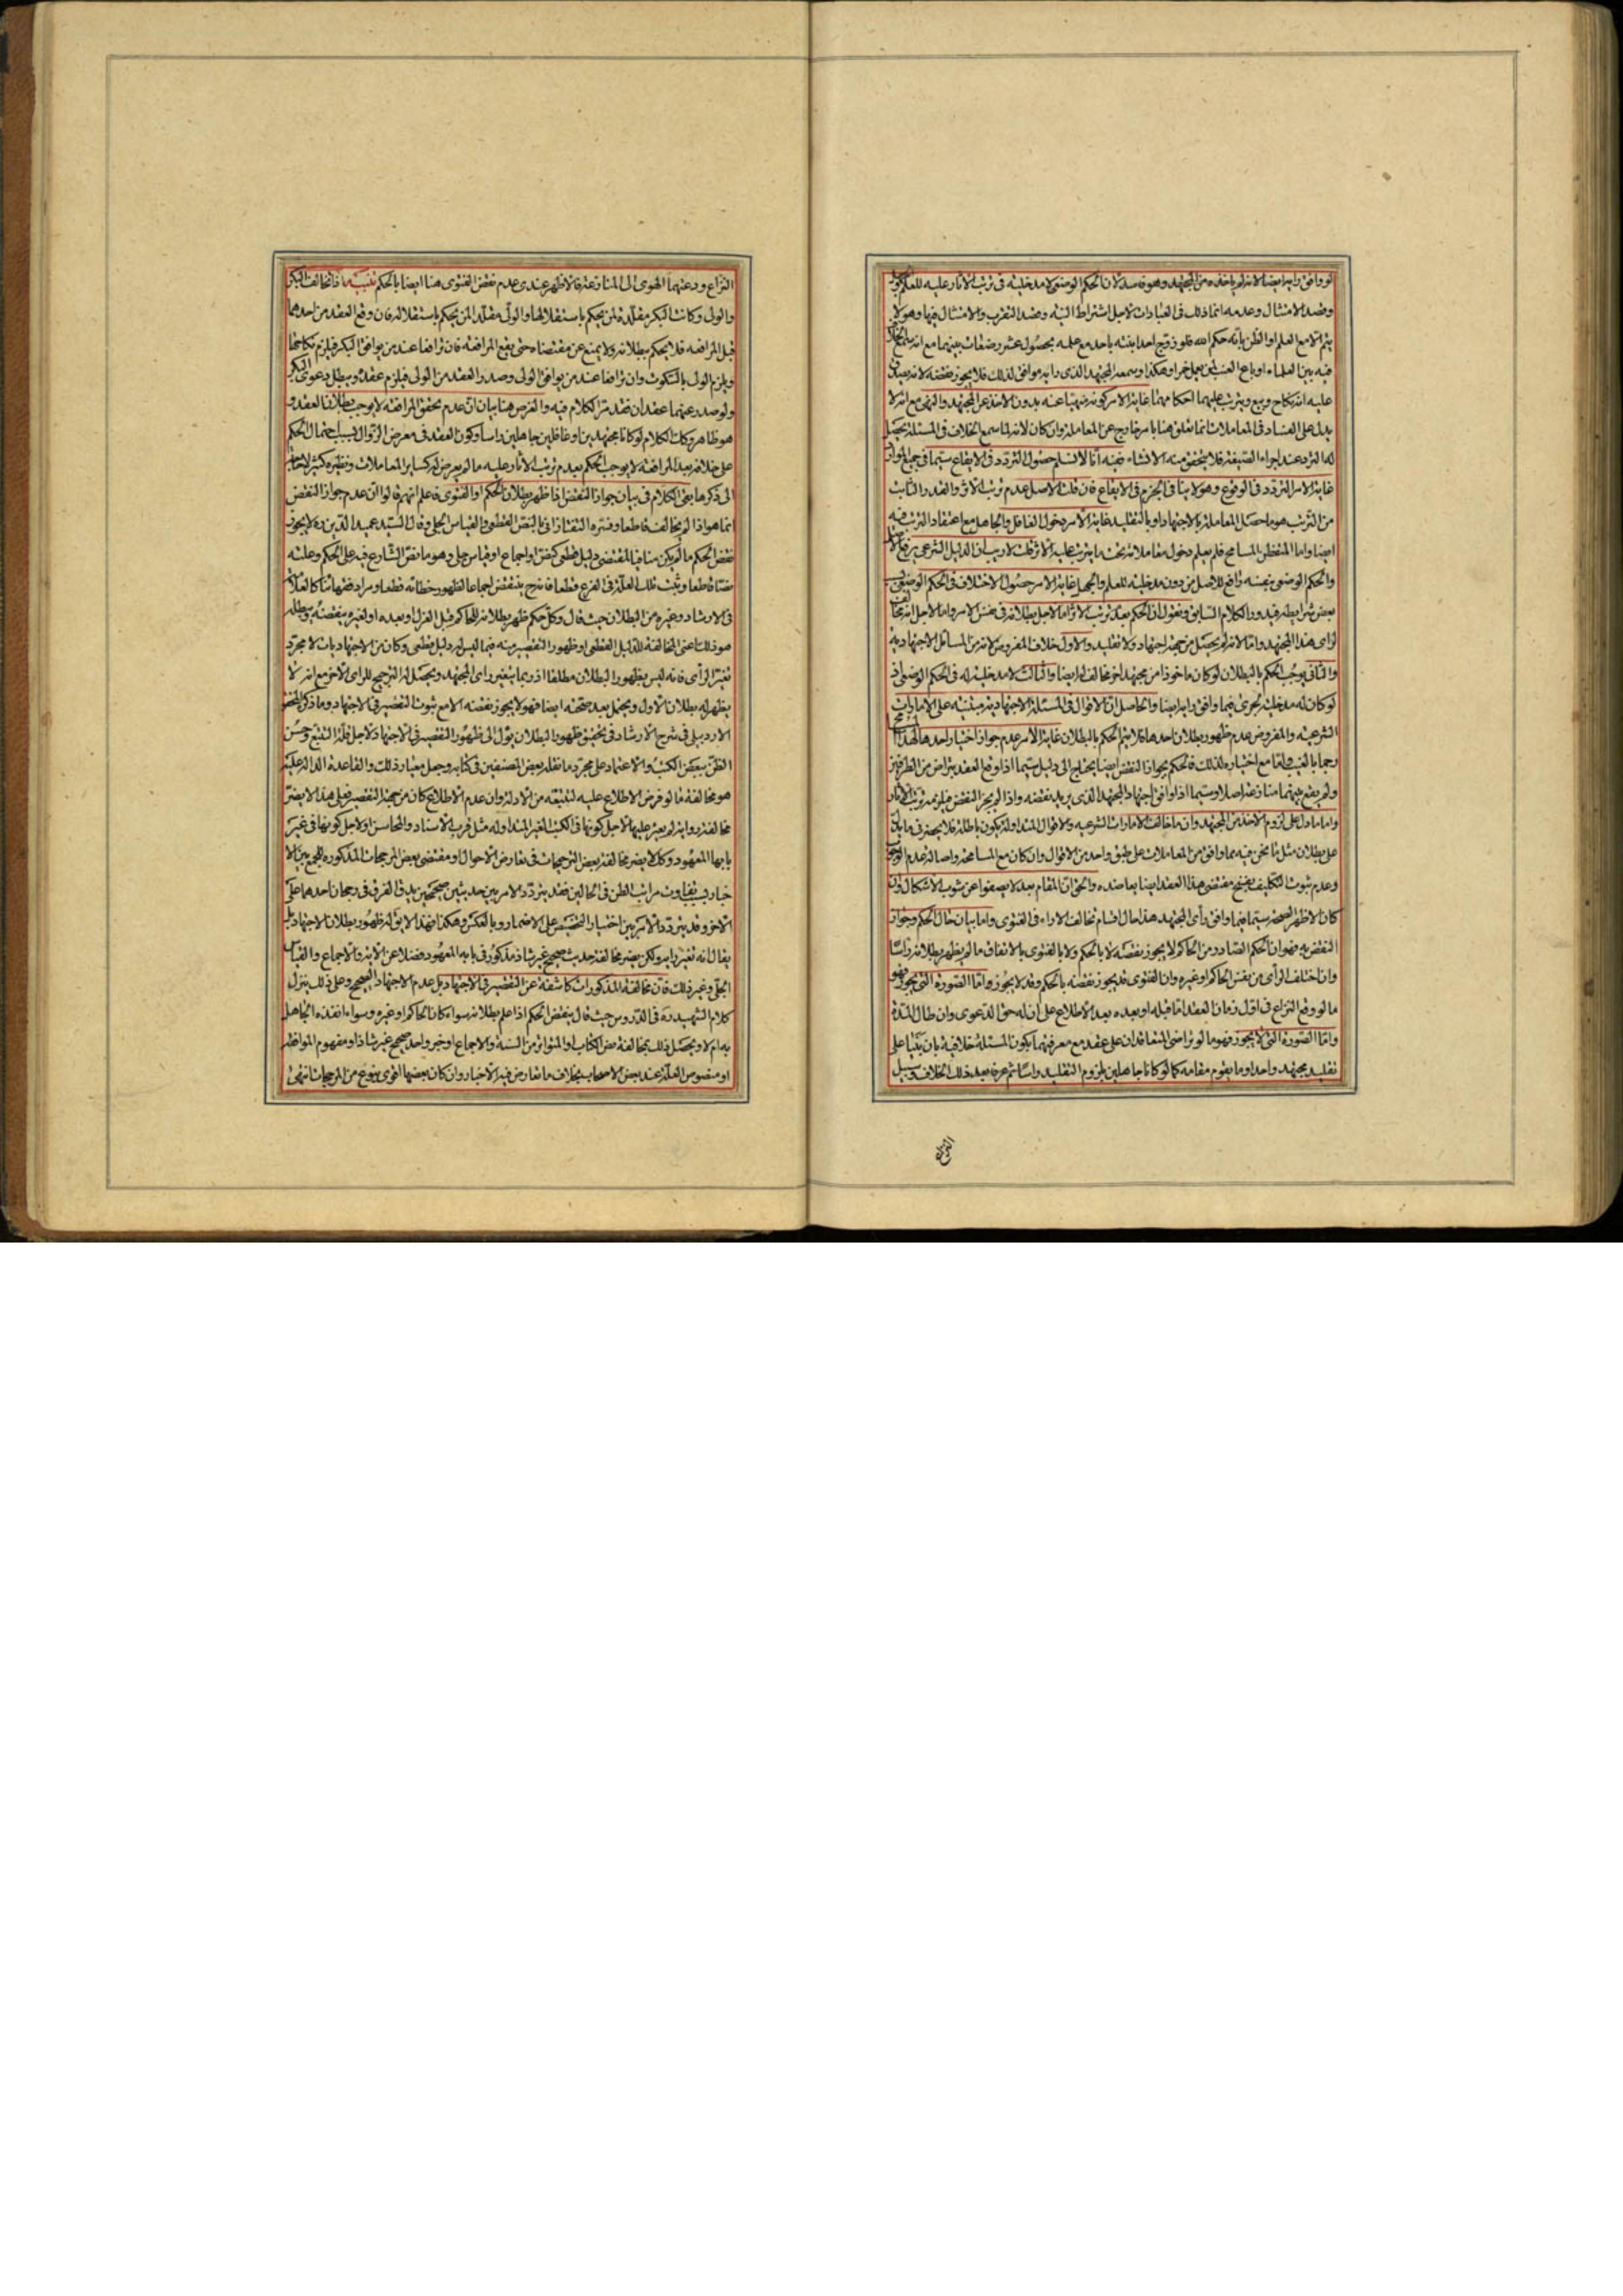 لو وافق رايه ايضا لانه لم ياخذه من المجتهد وهو فاسد لان الحكم الوضعى لا مدخلية فى ترتب الاثار عليه للعلم
وقصد الامتثال وعدمه انما ذلك فى العبادات لاجل اشتراط النية وقصد التقرب والامتثال فيها وهو لا
يتم الا مع العلم او الظن بانه حكم الله فلو زوج احد بنته باحد مع علمه بحصول عشر رضعات بينهما مع انه
فيه بين العلماء او باع العنب لمن يعمل خمرا وهكذا وسمعه المجتهد الذى رايه موافق لذلك فلا يجوز نقضه لانه يصدق
عليه انه نكاح وبيع ويترتب عليهما احكامهما غاية الامر كونه منهيا عنه بدون الاخذ عن المجتهد والنهى مع انه لا
يدل على الفساد فى المعاملات انما تعلق هنا بامر خارج عن المعاملة وان كان لانه لما سمع الخلاف فى المسئلة يحصل
له التردد عند اجراء الصيغة فلا يتحقق منه الانشاء ففيه انا لا نسلم حصول التردد فى الايقاع سيما فى جميع الموارد
غاية الامر التردد فى الوقوع وهو لا ينافى الجزم فى الايقاع فان قلت الاصل عدم ترتب الاثر والقدر الثابت
من الترتب هو ما حصل المعاملة بالاجتهاد او بالتقليد غاية الامر دخول الغافل والجاهل مع اعتقاد الترتب فيه
ايضا واما المتفطن المسامح فلم يعلم دخول معاملاته تحت ما يترتب عليه الاثر قلت لا ريب ان الدليل الشرعى يرفع الاصل
والحكم الوضعى بنفسه رافع للاصل من دون مدخلية للعلم والجهل غاية الامر حصول الاختلاف فى الحكم الوضعى
بعض شرايطه فيه وذا الكلام السابق ونقول ان الحكم بعدم ترتب الاثر اما لاجل بطلانه فى نفس الامر واما لاجل انه
لراى هذا المجتهد واما لانه لم يحصل من جهة اجتهاد ولا تقليد والاول خلاف المفروض لانه من المسائل الاجتهادية
والثانى يوجب الحكم بالبطلان لو كان ماخوذا من مجتهد اخر مخالف له ايضا والثالث لا مدخلية له فى الحكم الوضعى اذ
لو كان له مدخلية لجرى فيما وافق رايه ايضا والحاصل ان الاقوال فى المسئلة الاجتهادية مبتنية على الامارات
الشرعية والمفروض عدم ظهور بطلان احدها فلا يتم الحكم بالبطلان غاية الامر عدم جواز اختيار احدها لهذا
رجما بالغيب واما مع اختياره لذلك فالحكم بجواز النقض ايضا يحتاج الى دليل سيما اذا وقع العقد بتراض من الطرفين
ولم يقع بينهما منازعة اصلا وسيما اذا وافق اجتهاد المجتهد الذى يريد نقضه واذا لم يجز النقض فيلزمه ترتب الاثار
واما ما دل على لزوم الاخذ من المجتهد وان ما خالف الامارات الشرعية والاقوال المتداولة يكون باطلا فلا يحضرنى ما يدل
على بطلان مثل ما نحن فيه مما وافق من المعاملات على طبق واحد من الاقوال وان كان مع المسامحة واصالة عدم
وعدم ثبوت التكليف بفسخ مقتضى هذا العقد ايضا يعاضده والحق ان المقام بعد لا يصفوا عن شوب الاشكال وان
كان الاظهر الصحة سيما فيما وافق رأى المجتهد هذا حال اقسام تخالف الاراء فى الفتوى واما بيان حال الحكم وجواز
النقض به فهو ان الحكم الصادر من الحاكم لا يجوز نقضه لا بالحكم ولا بالفتوى بالاتفاق ما لم يظهر بطلانه راسًا
وان اختلف الرأى من نفس الحاكم او غيره وان الفتوى قد يجوز نقضه بالحكم وقد لا يجوز واما الصورة التى يجوز فهو
ما لو وقع النزاع فى اول زمان العقد اما قبله او بعده بعد الاطلاع على ان له حق الدعوى وان طال المدة
واما الصورة التى لا يجوز فهو ما لو تراضى المتعاقدان على عقد مع معرفتهما بكون المسئلة خلافية بان بنيا على
تقليد مجتهد واحد او ما يقوم مقامه كما لو كانا جاهلين بلزوم التقليد راسا ثم عرفا بعد ذلك الخلاف وسبيل
النزاع
النزاع ودعتهما الهوى الى المنازعة فالاظهر عندى عدم نقض الفتوى هنا ايضا بالحكم تنبيه اذا تخالف البكر
والولى وكانت البكر مقلدة لمن يحكم باستقلالها والولى مقلد المن يحكم باستقلاله فان وقع العقد من احدهما
قبل المرافعة فلا يحكم ببطلانه ولا يمنع عن مقتضاه حتى يقع المرافعة فان ترافعا عند من يوافق البكر فيلزم نكاحها
ويلزم الولى بالسكوت وان ترافعا عند من يوافق الولى وصدر العقد من الولى فيلزم عقده ويبطل دعوى البكر
ولو صدر عنهما عقدان فقد مر الكلام فيه والغرض هنا بيان ان عدم تحقق المرافعة لا يوجب بطلان العقد و
هو ظاهر وكذا الكلام لو كانا مجتهدين او غافلين جاهلين راسا وكون العقد فى معرض الزوال بسبب احتمال الحكم
على خلافه بعد المرافعة لا يوجب الحكم بعدم ترتب الاثار عليه ما لم يعرض له كسائر المعاملات ونظيره كثير لا يحتاج
الى ذكرها بقى الكلام فى بيان جواز النقض اذا ظهر بطلان الحكم او الفتوى فاعلم انهم قالوا ان عدم جواز النقض
انما هو اذا لم يخالف قاطعا وفسره التفتازانى بالنص القطعى والقياس الجلى وقال السيد عميد الدين ره لا يجوز
نقض الحكم ما لم يكن منافيا لمقتضى دليل قطعى كنص او اجماع او قياس جلى وهو ما نص الشارع فيه على الحكم وعلته
نصا قاطعا وثبت تلك العلة فى الفرع قطعا فانه ح ينقض اجماعا لظهور خطائه قطعا ومراد فقهائنا كالعلامة
فى الارشاد وغيره من البطلان حيث قال وكل حكم ظهر بطلانه للحاكم قبل العزل او بعده او لغيره ينقضه ويبطله
هو ذلك اعنى المخالفة للدليل القطعى او ظهور التقصير منه فيما ليس له دليل قطعى وكان من الاجتهاديات لا مجرد
تغير الرأى فانه ليس بظهور البطلان مطلقا اذ ربما يتغير راى المجتهد ويحصل له الترجيح للراى الاخر مع انه لا
يظهر له بطلان الاول ويحتمل بعد صحته ايضا فهو لا يجوز نقضه الا مع ثبوت التقصير فى الاجتهاد وما ذكره المحقق
الاردبيلى فى شرح الارشاد فى تحقيق ظهور البطلان يؤل الى ظهور التقصير فى الاجتهاد لاجل قلة التتبع وحسن
الظن ببعض الكتب والاعتماد على مجرد ما نقله بعض المصنفين فى كتابه وجعل معيار ذلك والقاعدة الدالة عليه
هو مخالفة ما لو فرض الاطلاع عليه لتتبعه من الادلة وان عدم الاطلاع كان من جهة التقصير فعلى هذا لا يضر
مخالفة رواية لم يعثر عليها لاجل كونها فى الكتب الغير المتداولة مثل قرب الاسناد والمحاسن او لاجل كونها فى غير
بابها المعهود وكذا لا يضر مخالفة بعض الترجيحات فى تعارض الاحوال او مقتضى بعض المرجحات المذكورة للجمع بين الا
خبار بسبب تفاوت مراتب الظن فى الحالين فقد يتردد الامر بين حديثين صحيحين يدق الفرق فى رجحان احدهما على
الاخر وقد يتردد الامر بين اختيار التخصيص على الاضمار وبالعكس وهكذا فهذا لا يق له ظهور بطلان الاجتهاد بل
يقال انه تغير رايه ولكن يضر مخالفة حديث صحيح غير شاذ مذكور فى بابه المعهود فضلا عن الاية والاجماع والقياس
الجلى وغير ذلك فان مخالفة المذكورات كاشفة عن التقصير فى الاجتهاد بل عدم الاجتهاد الصحيح وعلى ذلك ينزل
كلام الشهيد ره فى الدروس حيث قال ينقض الحكم اذا علم بطلانه سواء كان الحاكم او غيره وسواء انفذه الجاهل
به ام لا ويحصل ذلك بمخالفة نص الكتاب او المتواتر من السنة والاجماع او خبر واحد صحيح غير شاذ او مفهوم الموافقة
او منصوص العلة عند بعض الاصحاب بخلاف ما تعارض فيه الاخبار وان كان بعضها اقوى بنوع من المرجحات انتهى